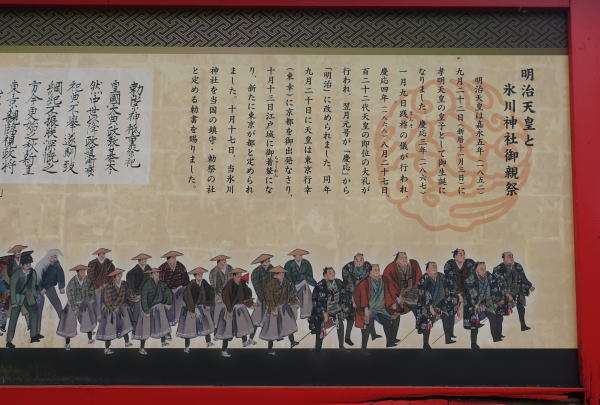 明治天皇と
氷川神社御親祭
明治天皇は嘉永五年（一八五二）
九月二十二日（新暦十一月三日）に
孝明天皇の皇子として御生誕に
なりました。慶応三年（一八六七）
一月九日践祚の儀が行われ、
慶応四年（一八六八）八月二十七日、
百二十二代天皇の即位の大礼が
行われ、翌月元号が「慶応」から
「明治」に改められました。同年
九月二十日に天皇は東京行幸
（東幸）に京都を御出発なさり、
十月十三日江戸城に御著輦にな
り、新たに東京が都と定められ
ました。十月十七日、当氷川
神社を当国の鎮守・勅祭の社
と定める勅書を賜りました。
勅祭神祇重祭祀
皇國大典政教基本
然中世以降政道漸衰
祀典不擧遂馴致
綱紀不振朕深慨之
方今更始之秋新置
東京親臨視政将